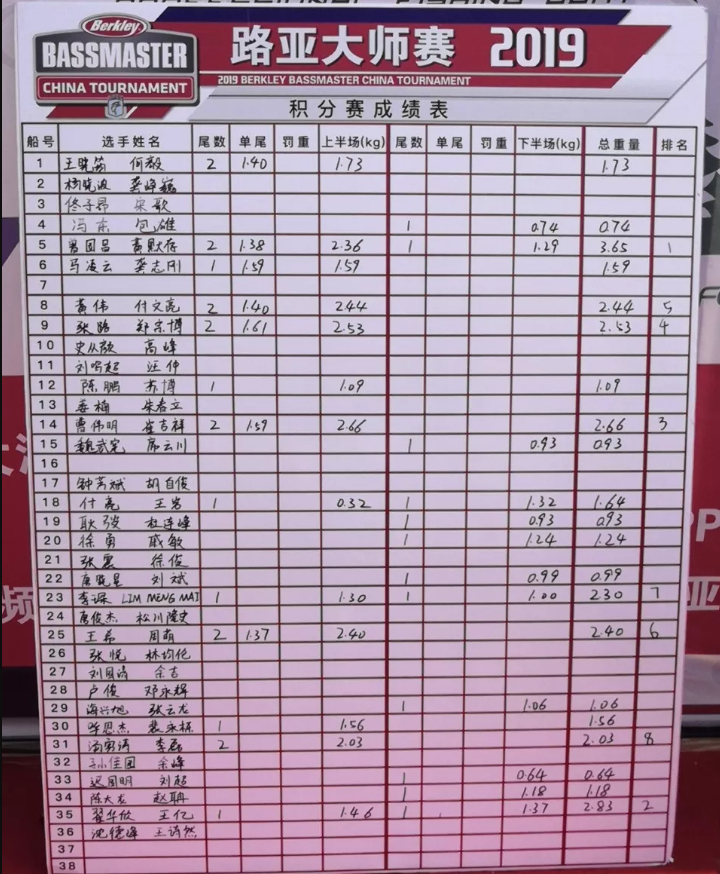 Berkley
BASSMASTER
CHINA TOURNAMENT
路亚大师赛 2019
2019 BERKLEY BASSMASTER CHINA TOURNAMENT
积分赛成绩表
船号 选手姓名 尾数 单尾 罚重 上半场(kg) 尾数 单尾 罚重 下半场(kg) 总重量 排名
1 王晓笛 何毅 2 1.40 1.73 1.73
2 杨晓波 龚峰巍
3 佟子昂 宋歌
4 冯东 包雄 1 0.74 0.74
5 男团昌 黄默存 2 1.38 2.36 1 1.29 3.65 1
6 马凌云 龚志刚 1 1.59 1.59 1.59
7
8 黄伟 付文亮 2 1.40 2.44 2.44 5
9 张璐 郑宗博 2 1.61 2.53 2.53 4
10 史从敬 高峰
11 刘鸣超 汪仲
12 陈鹏 苏博 1 1.09 1.09
13 娄楠 柴春立
14 曹伟明 崔吉祥 2 1.59 2.66 2.66 3
15 魏武定 席云川 1 0.93 0.93
16
17 钟芳斌 胡自俊
18 付亮 王岩 1 0.32 1 1.32 1.64
19 耿骏 杜连峰 1 0.93 0.93
20 徐勇 戚敏 1 1.24 1.24
21 张震 徐俊
22 唐晓星 刘斌 1 0.99 0.99
23 李源 LIM MENG MAI 1 1.30 1 1.00 2.30 7
24 唐俊杰 松川隆史
25 王希 周萌 2 1.37 2.40 2.40 6
26 张悦 林均伦
27 刘国清 余吉
28 卢俊 邓永辉
29 海兴旭 张云龙 1 1.06 1.06
30 李思杰 裴永栋 1 1.56 1.56
31 汤勇涛 李磊 2 2.03 2.03 8
32 孙佳园 余峰
33 迟周明 刘超 1 0.64 0.64
34 陈大龙 赵聃 1 1.18 1.18
35 翟华欣 王亿 1 1.46 1 1.37 2.83 2
36 沈德峰 王诗然
37
38